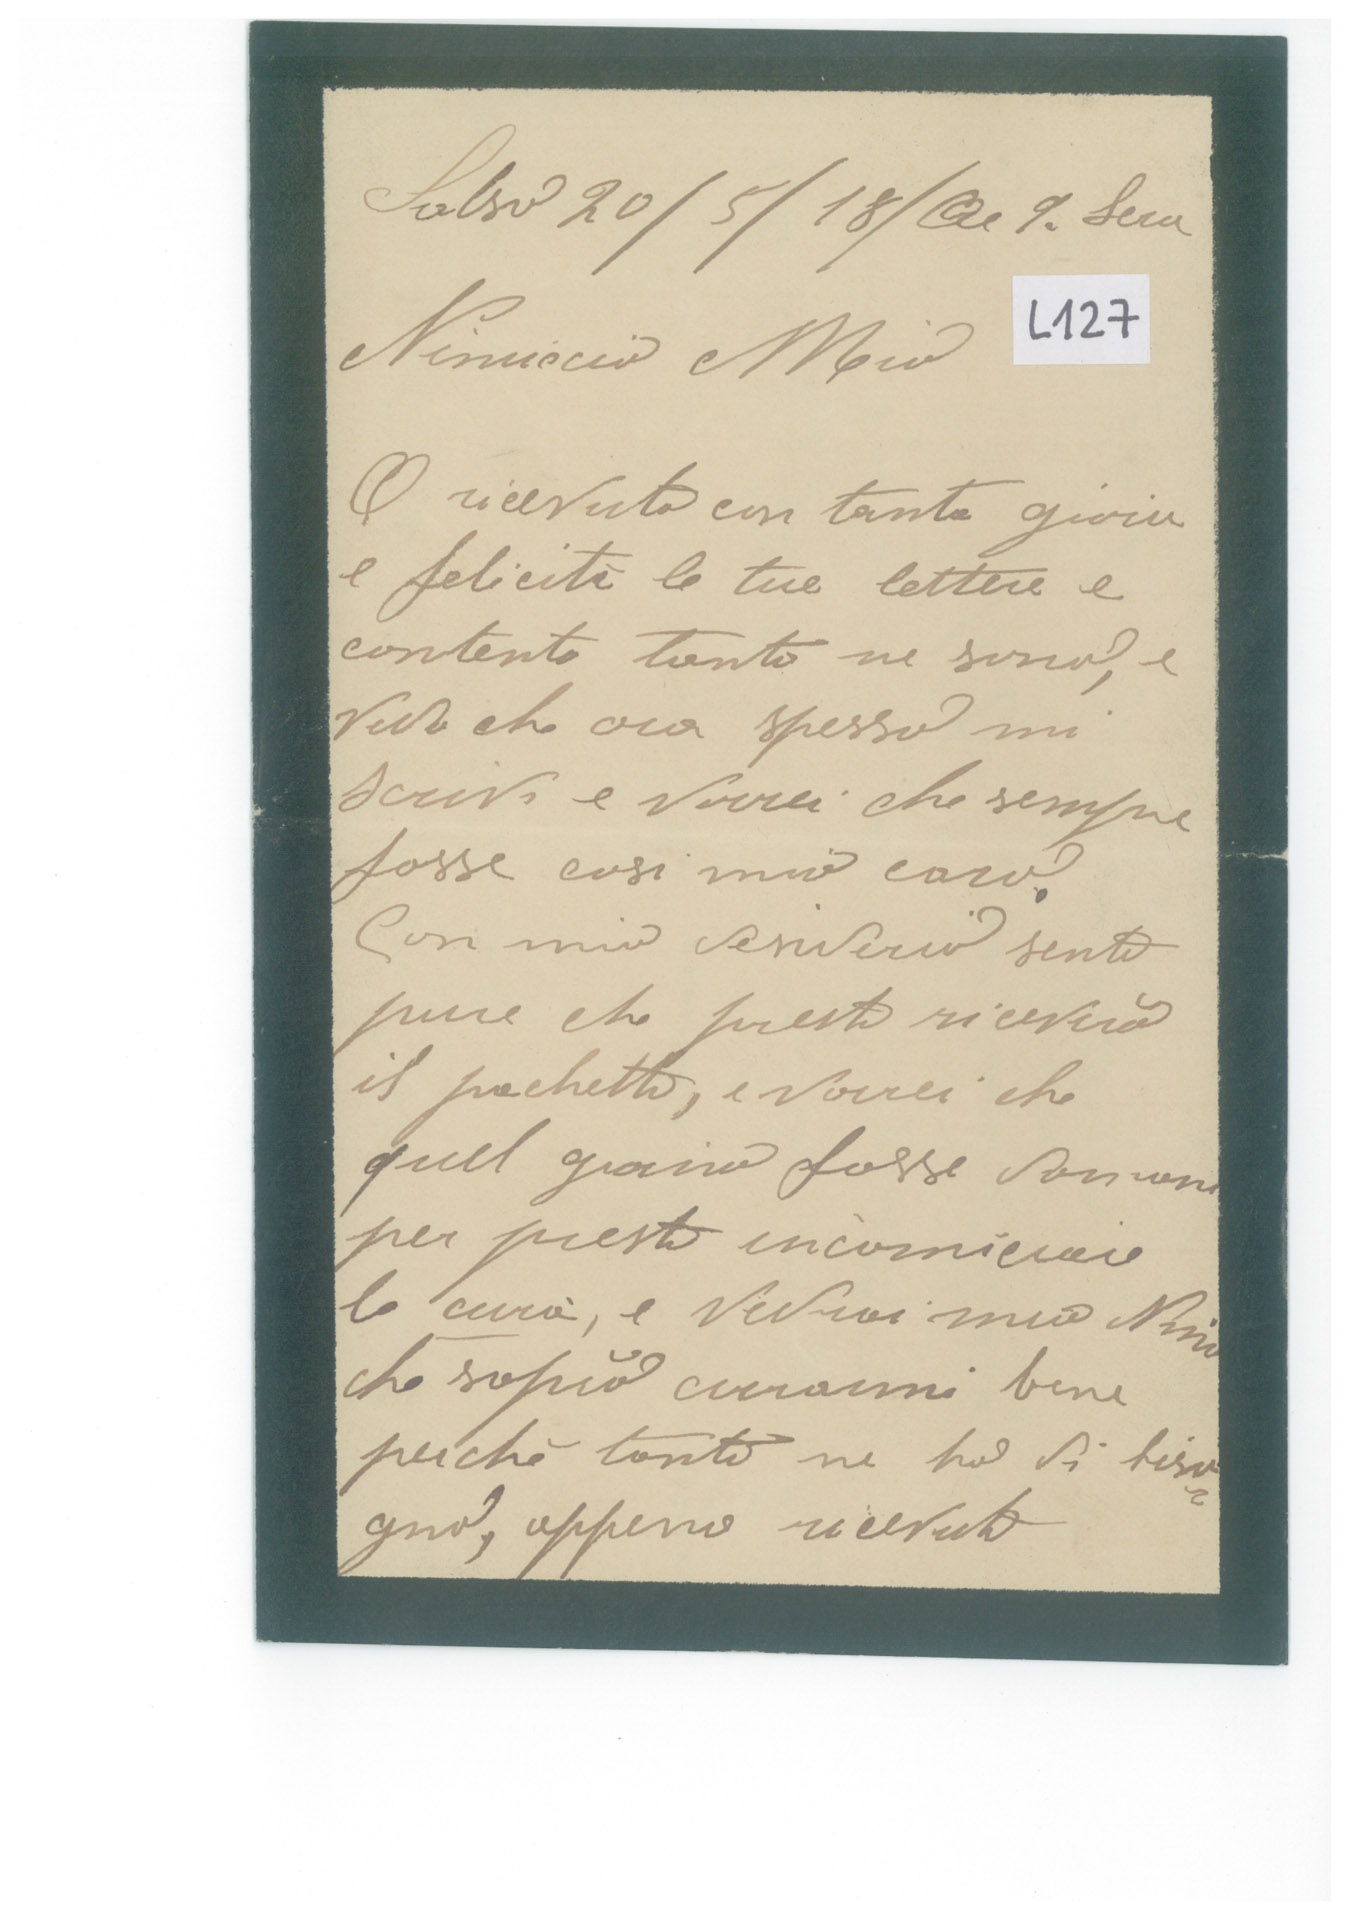 Salso 20/5/18/Ore 9. Sera
L127
Ninuccio Mio
O ricevuto con tanta gioia
e felicità le tue lettere e
contento tanto ne sono, e
vedo che ora spesso mi
scrivi e vorrei che sempre
fosse cosi mio caro.
Con mio desiderio sento
pure che presto riceverò
il pachetto, e vorrei che
quel giorno fosse domani
per presto incominciare
la cura, e vedrai mio Nino
che saprò curarmi bene
perchè tanto ne ho di biso
gno, appena ricevuto